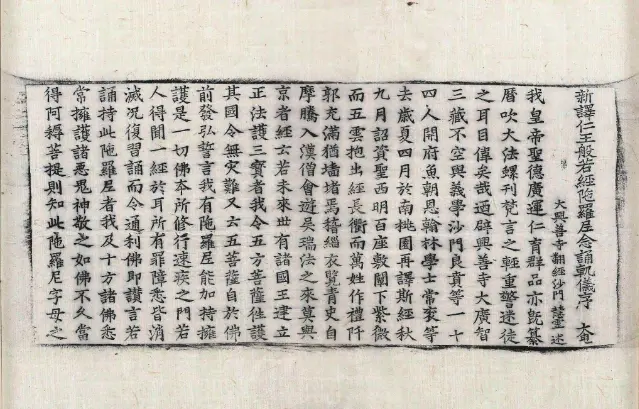 新譯仁王般若經陀羅尼念誦軌儀序 大奄
大興善寺翻經沙門慧靈述
我皇帝聖德廣運仁育群品亦旣纂
曆吹大法螺刊梵言之輕重警迷徒
之耳目偉矣哉迺辟興善寺大廣智
三藏不空與義學沙門良賁等一十
四人開府魚朝恩翰林學士常袞等
去歲夏四月於南桃園再譯斯經秋
九月詔資聖西明百座敷闡下紫微
而五雲抱出經長衢而萬姓作禮阡
郭充滿猶墻堵焉稽緇衣覽青史自
摩騰入漢僧會遊吳瑞法之來莫與
京者經云若未來世有諸國王建立
正法護三寶者我令五方菩薩往護
其國令無災難又云五菩薩自於佛
前發弘誓言我有陀羅尼能加持擁
護是一切佛本所修行速疾之門若
人得聞一經於耳所有罪障悉皆消
滅況復習誦而令通利佛即讚言若
誦持此陀羅尼者我及十方諸佛悉
常擁護諸惡鬼神敬之如佛不久當
得阿耨菩提則知此陀羅尼字母之